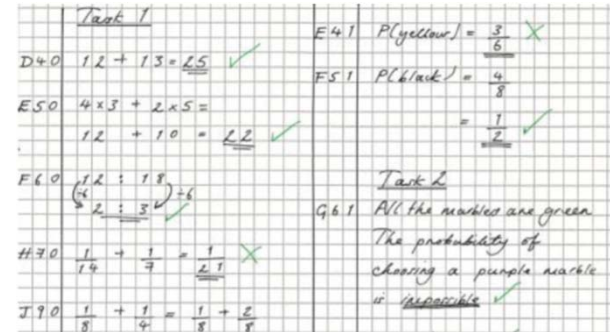 Task 1
D40 12 + 13 = 25
E50 4 × 3 + 2 × 5 =
12 + 10 = 22
F60 12 : 18
÷6 ÷6
2 : 3
H70 1/14 + 1/7 = 1/21
J90 1/8 + 1/4 = 1/8 + 2/8
E41 P(yellow) = 3/6
F51 P(black) = 4/8
= 1/2
Task 2
G61 All the marbles are green
The probability of
choosing a purple marble
is impossible